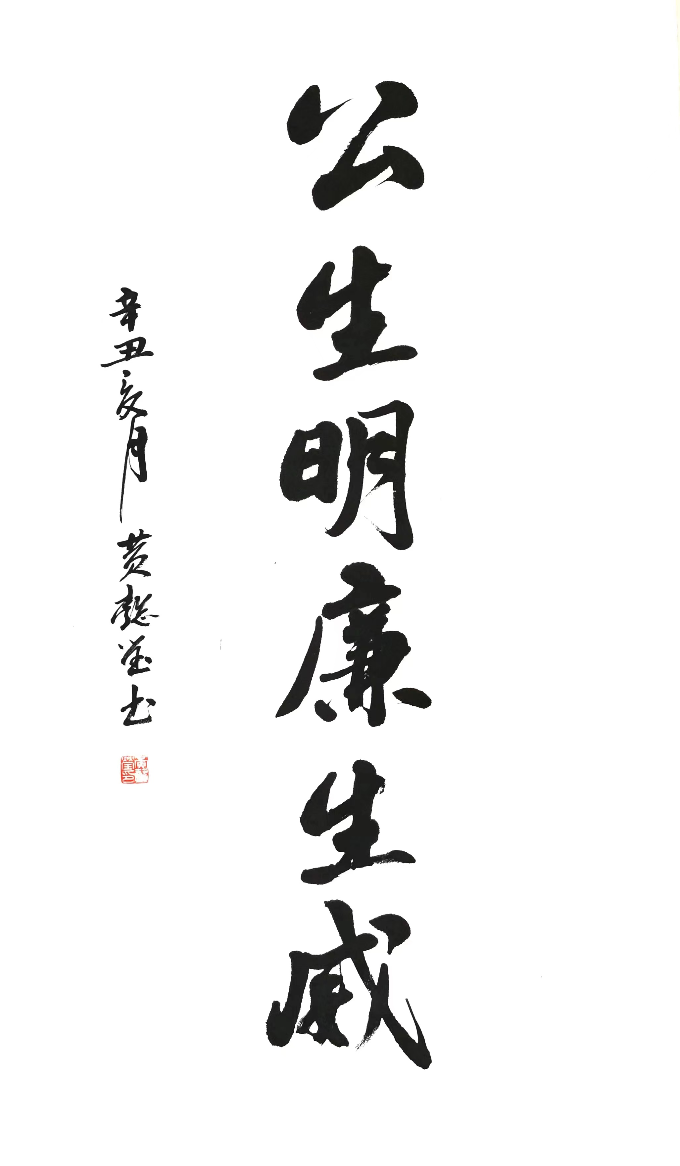 公生明廉生威
辛丑亥月 黄懿 书